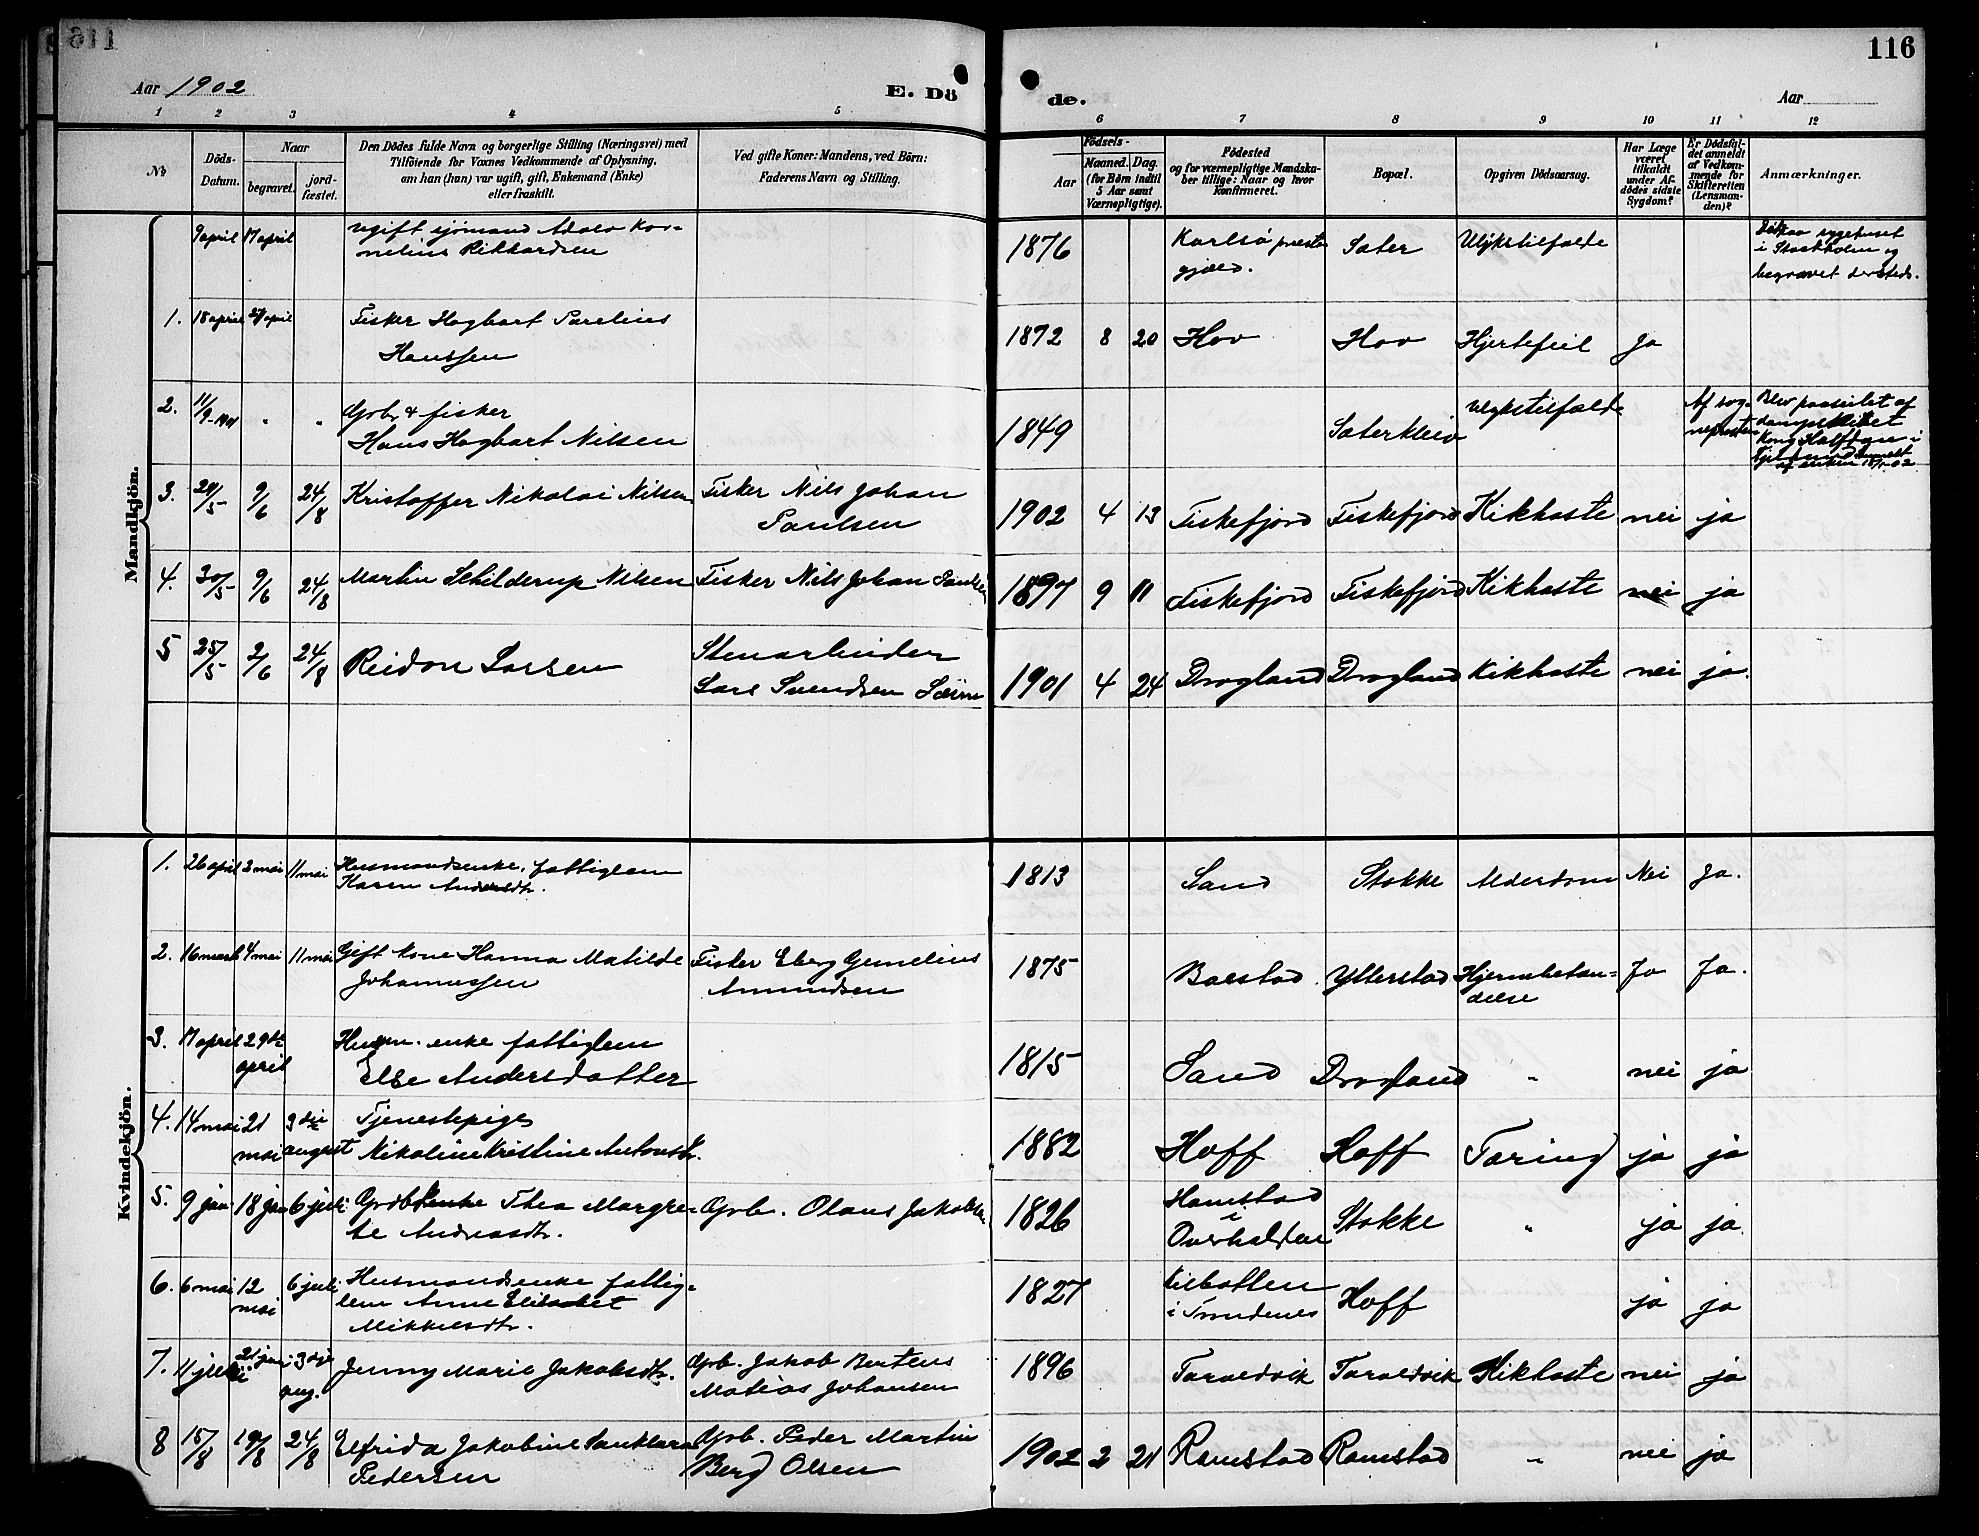 116
Aar 1902
E. Dö
de.
Aar
1 2 3 4 5 6 7 8 9 10 11 12
No
Döds-
Datum.
Naar
begravet.
jord-
fæstet.
Den Dödes fulde Navn og borgerlige Stilling (Næringsvei) med
Tilföiende for Voxnes Vedkommende af Oplysning,
om han (hun) var ugift, gift, Enkemand (Enke)
eller fraskilt.
Ved gifte Koner: Mandens, ved Börn:
Faderens Navn og Stilling.
Födsels-
Aar
Maaned. Dag.
(for Börn indtil
5 Aar samt
Værnepligtige).
Födested
og for værnepligtige Mandska-
ber tillige: Naar og hvor
konfirmeret.
Bopæl.
Opgiven Dödsaarsag.
Har Læge
været
tilkaldt
under Af-
dödes sidste
Sygdom?
Er Dödsfal-
det anmeldt
af Vedkom-
mende for
Skifteretten
(Lensman-
den)?
Anmærkninger.
Mandkjön.
9 april 17 april ugift sjömand Adolo Kor-
nelius Rikkardsen
1876 Karlsö præste
gjæld. Sater Ulykstilfælde
paa sygehuset
i Stockholm og
begravet dersteds.
1. 18 april 27 april Fisker Hagbart Parelius
Hanssen
1872 8 20 Hov Hov Hjertefeil Ja
2. 11/9-1901 " " Gbr. & fisker
Hans Hagbart Nilsen
1849 Saterkleiv Ulykstilfælde Af sog-
nepresten Blev paaseilet af
dampskibet
Kong Halfdan i
3. 29/5 9/6 24/8 Kristoffer Nikolai Nilsen Fisker Nils Johan
Paulsen
1902 4 13 Fiskefjord Fiskefjord Kikhoste nei ja
4. 30/5 9/6 24/8 Martin Schilderup Nilsen Fisker Nils Johan Paulsen
1897 9 11 Fiskefjord Fiskefjord Kikhoste nei ja
5 25/5 2/6 24/8 Reidon Larsen Stenarbeider
Lars Svendsen
1901 4 24 Drogland Drogland Kikhoste nei ja.
Kvindekjön.
1. 26 april 2 mai 11 mai Husmandsenke, fattiglem
Karen Andersdtr.
1813 Sand Stokke Alderdom Nei Ja.
2. 16 marts 4 mai 11 mai Gift kone Hanna Matilde
Johannessen Fisker Eberg Gemelius
Amundsen
1875 Balstad Ytterstad Hjernebetæn-
delse Ja Ja.
3. 17 april 29de
april Husm. enke fattiglem
Else Andersdatter
1815 Sand Drogland " nei ja
4. 14 mai 21
mai 3die
august Tjenestepige
Nikoline Kristine Antonsdtr.
1882 Hoff Hoff Tæring ja ja
5. 9 jan 18 jan 6 juli Grdbr.enke Thea Margre-
te Andreasdtr. Grb. Olaus Jakobsen
1826 Hamstad
i
Overhalden Stokke " ja ja.
6. 6 mai 12
mai 6 juli Husmandsenke fattig-
lem Anne Elisabet
Mikkelsdtr.
1827 Kilbotten
i Trondenes Hoff ja ja
7. 11 juli 21 juli 3dje
aug. Jenny Marie Jakobsdtr. Grb. Jakob Bertens
Matias Johansen
1896 Taraldsvik Taraldsvik Kikhoste nei ja
8 15/8 19/8 24/8 Elfrida Jakobine
Pedersen Grb. Peder Martin
Berg Olsen
1902 2 21 Ramstad Ramstad " nei ja